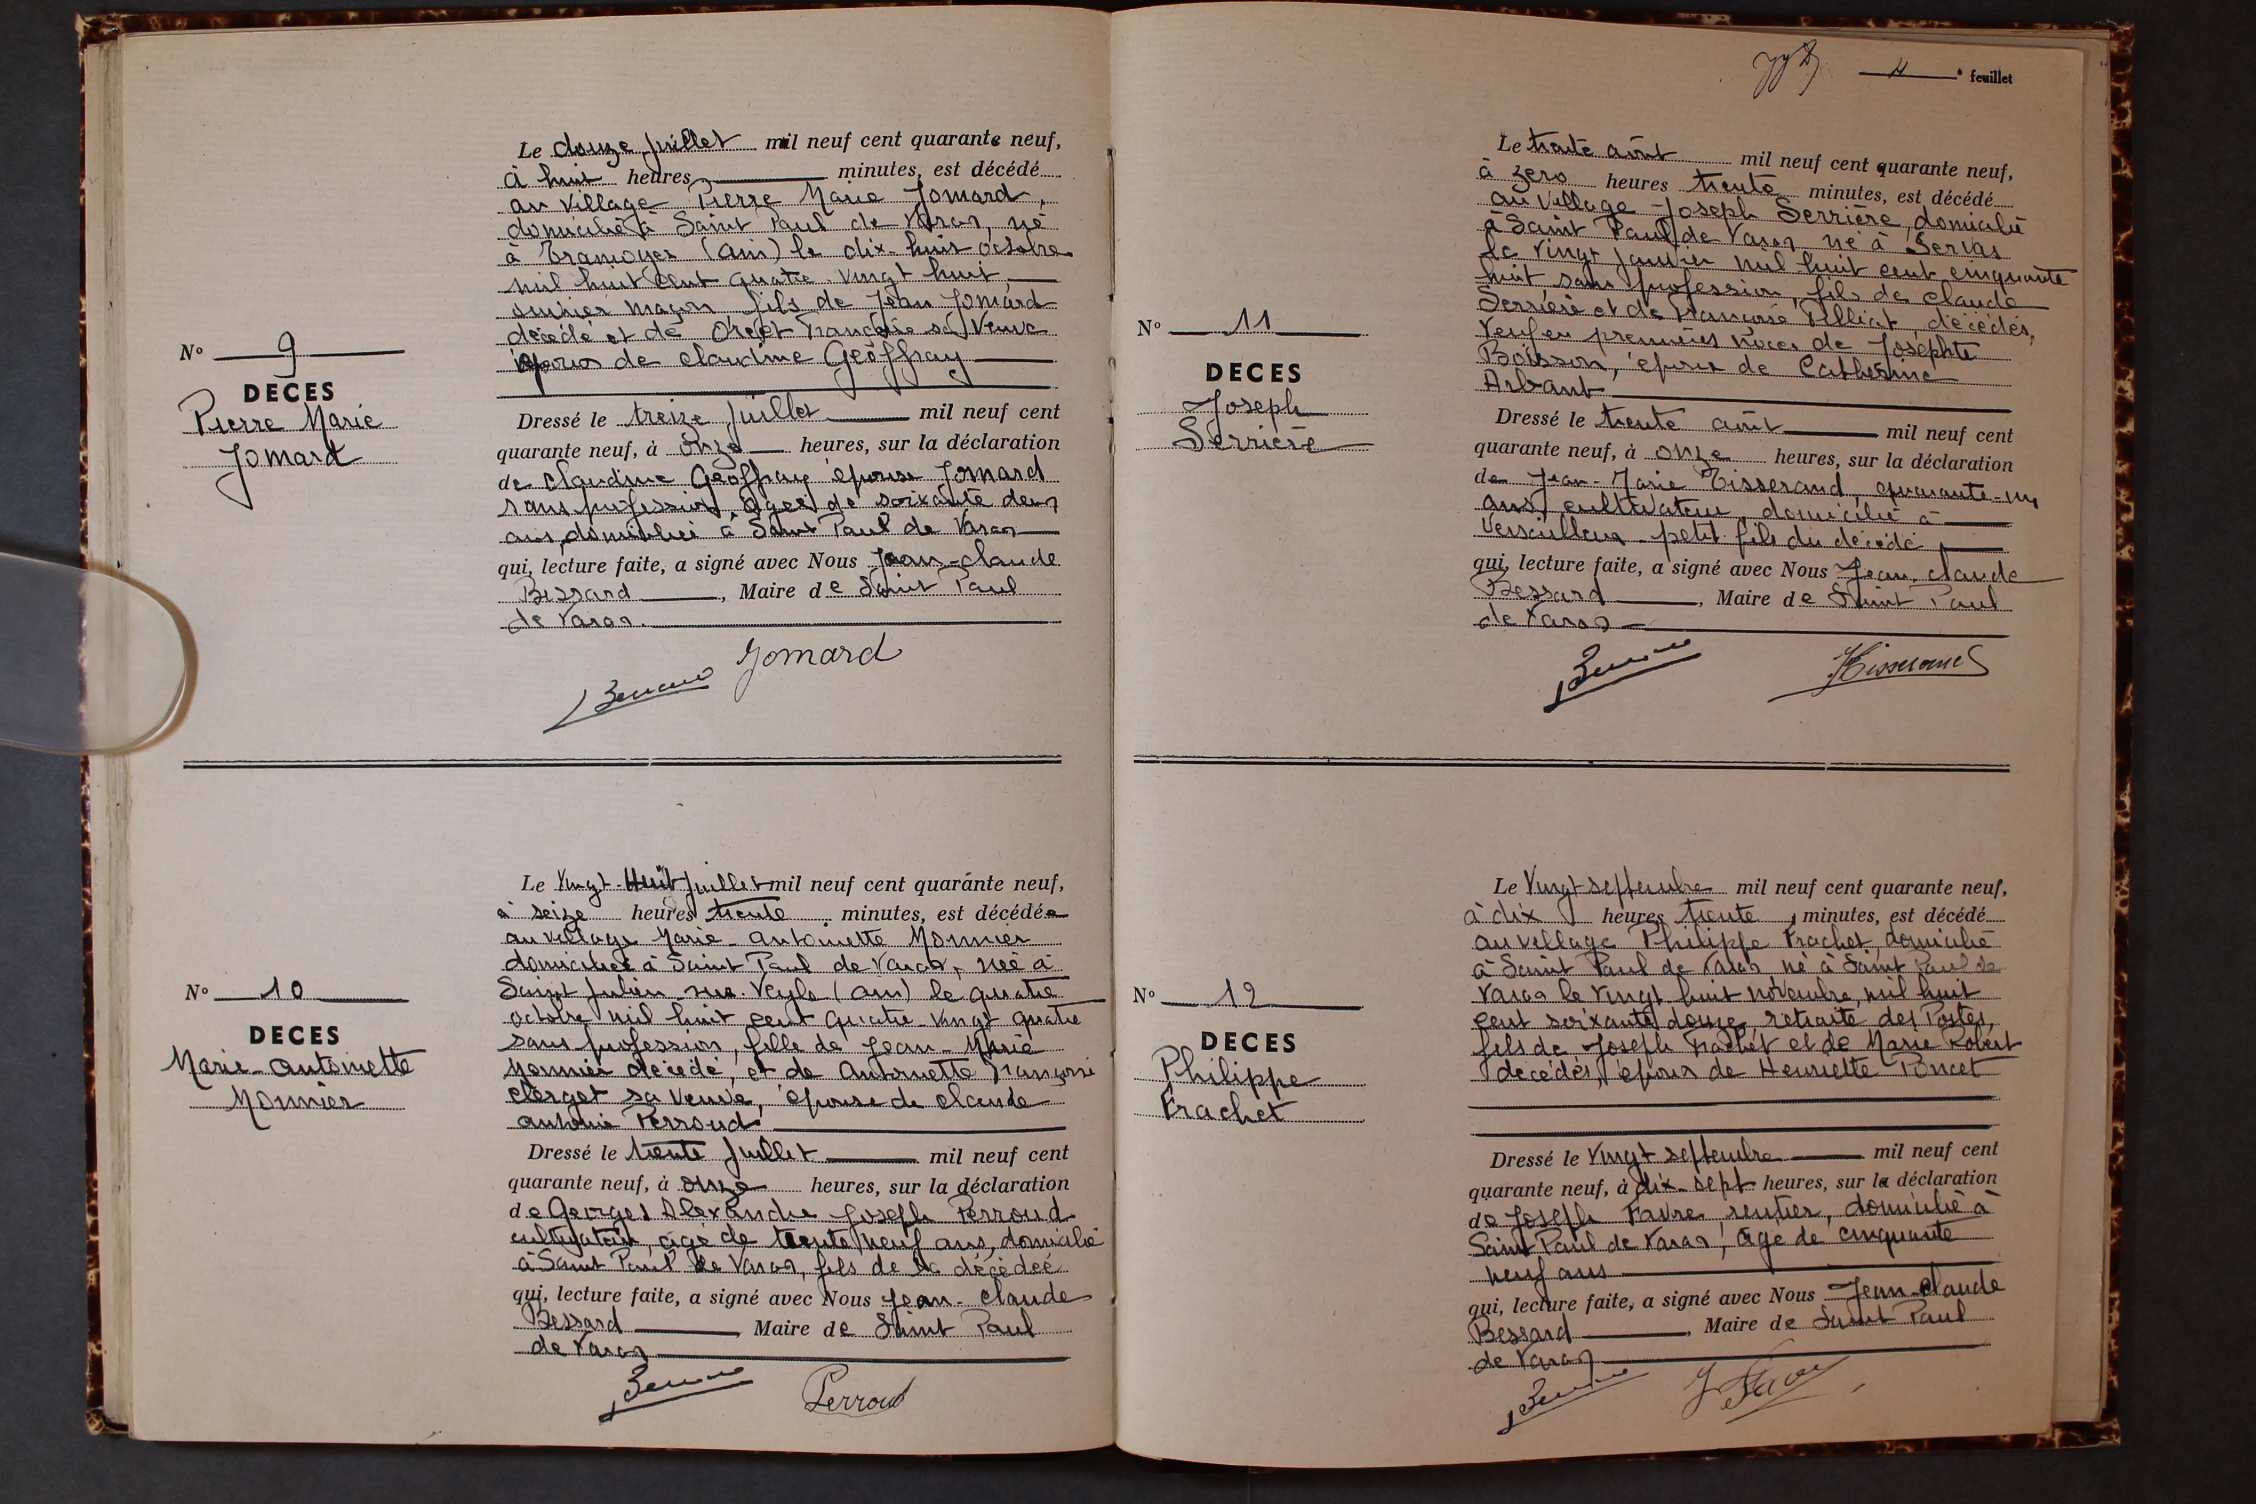 N° 9
DECES
Pierre Marie
Jomard
Le douze juillet mil neuf cent quarante neuf,
à huit heures minutes, est décédé
au village Pierre Marie Jomard,
domicilié à Saint Paul de Varax, né
à Tramoyes (Ain) le dix-huit octobre
mil huit cent quatre-vingt huit
ouvrier maçon fils de Jean Jomard
décédé et de Orcet Françoise sa Veuve
époux de Claudine Geoffray
Dressé le treize juillet mil neuf cent
quarante neuf, à onze heures, sur la déclaration
de Claudine Geoffray épouse Jomard
sans profession, âgée de soixante deux
ans, domiciliée à Saint Paul de Varax
qui, lecture faite, a signé avec Nous Jean-Claude
Bessard, Maire de Saint Paul
de Varax.
Jomard
N° 10
DECES
Marie-Antoinette
Monnier
Le Vingt-Huit Juillet mil neuf cent quarante neuf,
à seize heures trente minutes, est décédée
au village Marie-Antoinette Monnier
domiciliée à Saint Paul de Varax, née à
Saint Julien sur Veyle (Ain) le quatre
octobre mil huit cent quatre-vingt quatre
sans profession, fille de Jean-Marie
Monnier décédé, et de Antoinette Françoise
Clerget sa Veuve, épouse de Claude
Antoine Perroud
Dressé le trente Juillet mil neuf cent
quarante neuf, à onze heures, sur la déclaration
de Georges Alexandre Joseph Perroud
cultivateur, âgé de trente neuf ans, domicilié
à Saint Paul de Varax, fils de la décédée
qui, lecture faite, a signé avec Nous Jean-Claude
Bessard, Maire de Saint Paul
de Varax
Perroud
4 e feuillet
N° 11
DECES
Joseph
Serrière
Le trente août mil neuf cent quarante neuf,
à zero heures trente minutes, est décédé
au Village Joseph Serrière, domicilié
à Saint Paul de Varax né à Servas
le vingt janvier mil huit cent cinquante
huit, sans profession, fils de Claude
Serrière et de Françoise Pilliat, décédés,
Veuf en premières noces de Josephte
Boisson, époux de Catherine
Arbant
Dressé le trente août mil neuf cent
quarante neuf, à onze heures, sur la déclaration
de Jean-Marie Tisserand, quarante-un
ans, cultivateur, domicilié à
Versailleux petit-fils du décédé
qui, lecture faite, a signé avec Nous Jean-Claude
Bessard, Maire de Saint Paul
de Varax
Tisserand
N° 12
DECES
Philippe
Frachet
Le Vingt septembre mil neuf cent quarante neuf,
à dix heures trente minutes, est décédé
au village Philippe Frachet, domicilié
à Saint Paul de Varax, né à Saint Paul de
Varax le vingt huit novembre, mil huit
cent soixante douze, retraité des Postes,
fils de Joseph Frachet et de Marie Robert
décédés, époux de Henriette Poncet
Dressé le Vingt septembre mil neuf cent
quarante neuf, à dix-sept heures, sur la déclaration
de Joseph Favre, rentier, domicilié à
Saint Paul de Varax, âgé de cinquante
neuf ans
qui, lecture faite, a signé avec Nous Jean-Claude
Bessard, Maire de Saint Paul
de Varax
J Favre